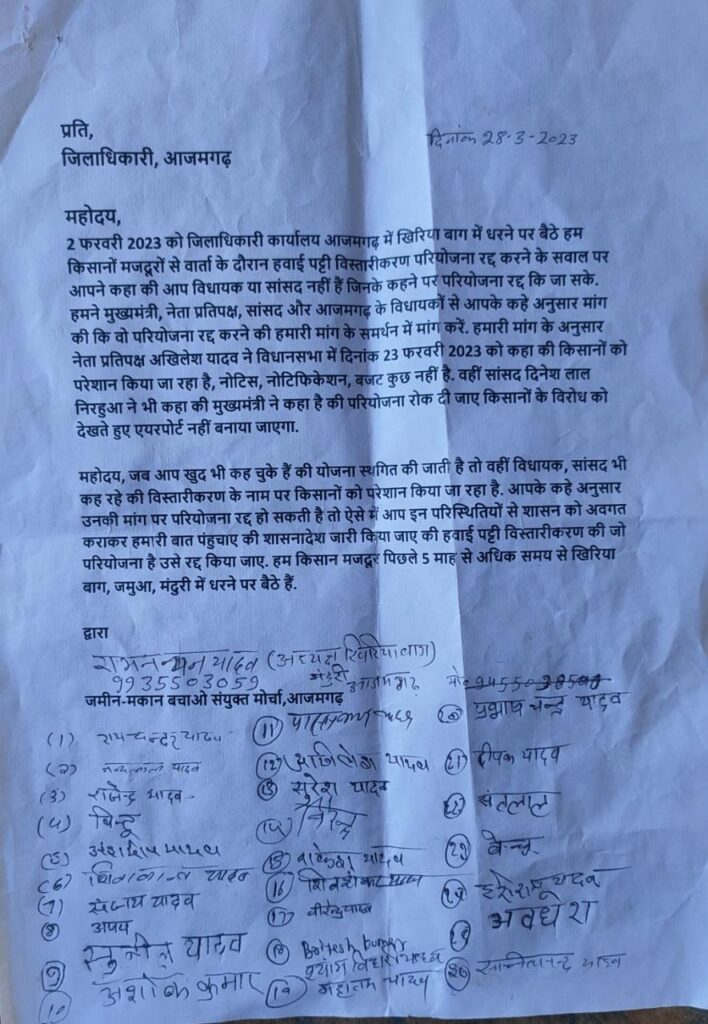 प्रति,
दिनांक 28-3-2023
जिलाधिकारी, आजमगढ़
महोदय,
2 फरवरी 2023 को जिलाधिकारी कार्यालय आजमगढ़ में खिरिया बाग में धरने पर बैठे हम
किसानों मजदूरों से वार्ता के दौरान हवाई पट्टी विस्तारीकरण परियोजना रद्द करने के सवाल पर
आपने कहा की आप विधायक या सांसद नहीं हैं जिनके कहने पर परियोजना रद्द कि जा सके.
हमने मुख्यमंत्री, नेता प्रतिपक्ष, सांसद और आजमगढ़ के विधायकों से आपके कहे अनुसार मांग
की कि वो परियोजना रद्द करने की हमारी मांग के समर्थन में मांग करें. हमारी मांग के अनुसार
नेता प्रतिपक्ष अखिलेश यादव ने विधानसभा में दिनांक 23 फरवरी 2023 को कहा की किसानों को
परेशान किया जा रहा है, नोटिस, नोटिफिकेशन, बजट कुछ नहीं है. वहीं सांसद दिनेश लाल
निरहुआ ने भी कहा की मुख्यमंत्री ने कहा है की परियोजना रोक दी जाए किसानों के विरोध को
देखते हुए एयरपोर्ट नहीं बनाया जाएगा.
महोदय, जब आप खुद भी कह चुके हैं की योजना स्थगित की जाती है तो वहीं विधायक, सांसद भी
कह रहे की विस्तारीकरण के नाम पर किसानों को परेशान किया जा रहा है. आपके कहे अनुसार
उनकी मांग पर परियोजना रद्द हो सकती है तो ऐसे में आप इन परिस्थितियों से शासन को अवगत
कराकर हमारी बात पंहुचाएं की शासनादेश जारी किया जाए की हवाई पट्टी विस्तारीकरण की जो
परियोजना है उसे रद्द किया जाए. हम किसान मजदूर पिछले 5 माह से अधिक समय से खिरिया
बाग, जमुआ, मंदुरी में धरने पर बैठे हैं.
द्वारा
रामनयन यादव (अध्यक्ष खिरियाबाग)
9935503059 मंदुरी आजमगढ़ मो०
जमीन-मकान बचाओ संयुक्त मोर्चा,आजमगढ़
(1) रामचन्दर यादव
(2) नन्दलाल यादव
(3) राजेन्द्र यादव
(4) बिन्दू
(5) यादव
(6) यादव
(7) संजय यादव
(8)
(9) सुनील यादव
10 अशोक कुमार
(11)
(12) अखिलेश यादव
(13) सुरेश यादव
(14) विरेन्द्र
(15) राकेश यादव
(16)
(17) वीरेन्द्र यादव
(18)
(19) महातम यादव
(20) प्रभाष चन्द्र यादव
(21) दीपक यादव
(22) संतलाल
(23)
(24) यादव
(25) अवधेश
(26) यादव